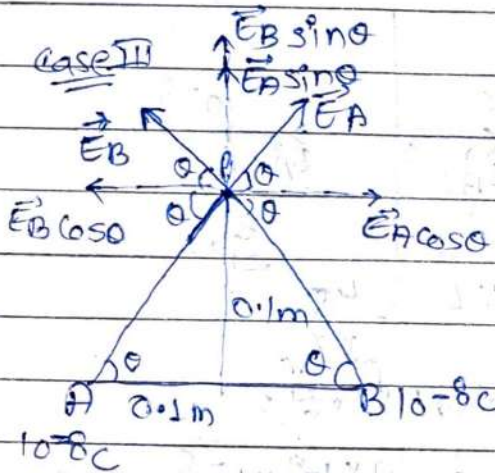 E⃗B sinθ
Case III
E⃗A sinθ
E⃗A
E⃗B
θ θ
θ θ
E⃗B cosθ
E⃗A cosθ
0.1m
θ θ
A 0.1m B 10⁻⁸C
10⁻⁸C